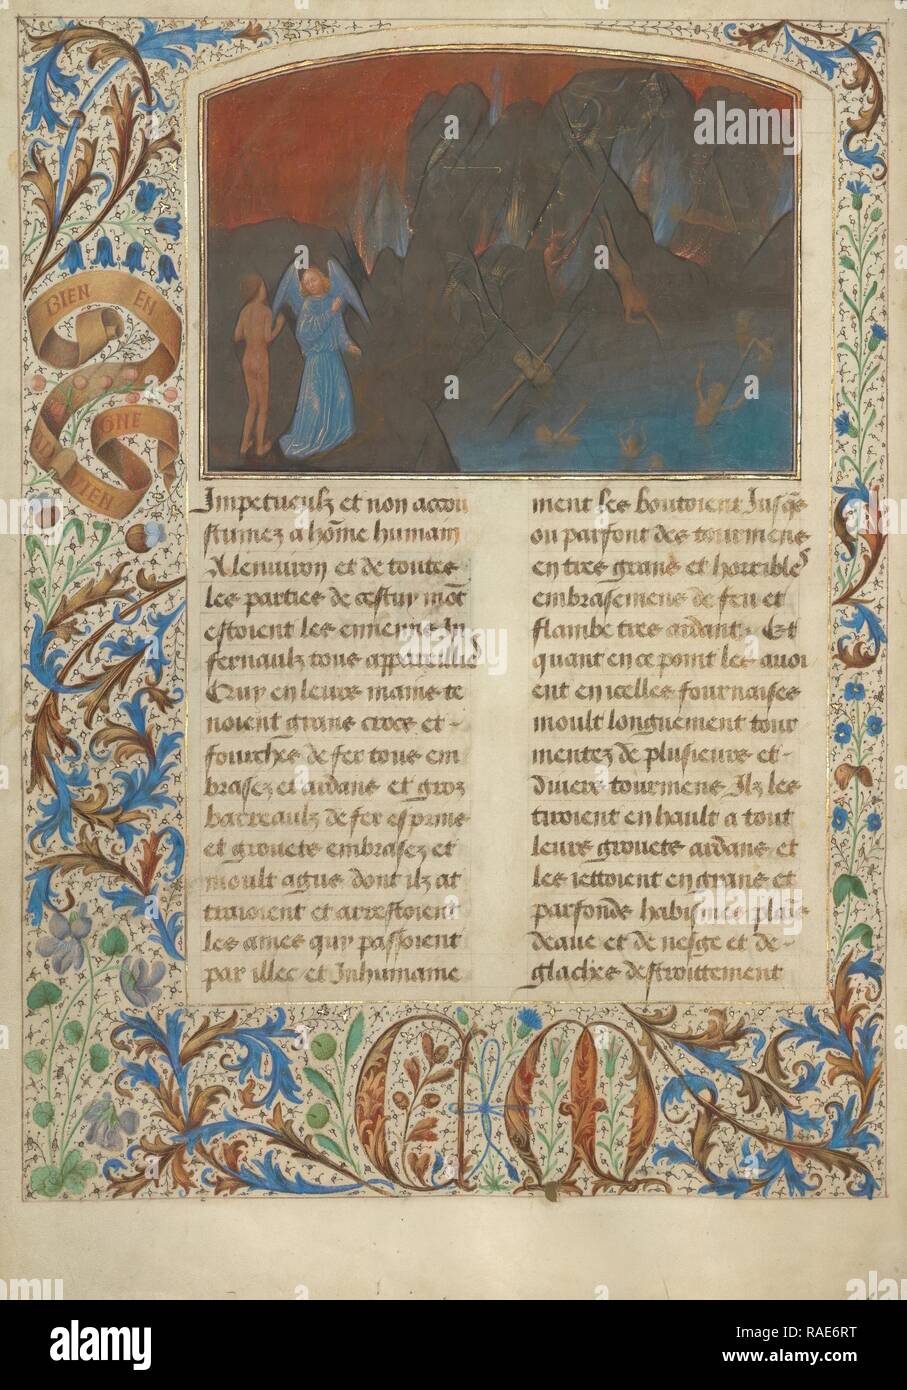 BIEN EN
Impetueulz et non accou
stumez a hōme humain
A lenuiron et de toutes
les parties de cestuy mōt
estoient les ennemis In
fernaulz tous appareilliẽ
Quy en leurs mains te
noient grans crocs et
fourches de fer tous em
brasez et ardans et groz
barreaulz de fer esprins
et grouets embrasez et
moult agus dont ilz at
traioient et arrestoient
les ames quy passoient
par illec et Inhumaine
ment les boutoient Jusq̃s
ou parfont des tourmens
en tres grans et horribles
embrasemens de feu et
flambe tres ardant. Et
quant en ce point les auoi
ent en icelles fournaises
moult longuement tour
mentez de plusieurs et
diuers tourmens Ilz les
tiroient en hault a tout
leurs grouets ardans et
les iettoient en grans et
parfonds habismes plains
deaue et de neige et de
glaches destroittement
C M
alamy
Image ID: RAE6RT
www.alamy.com